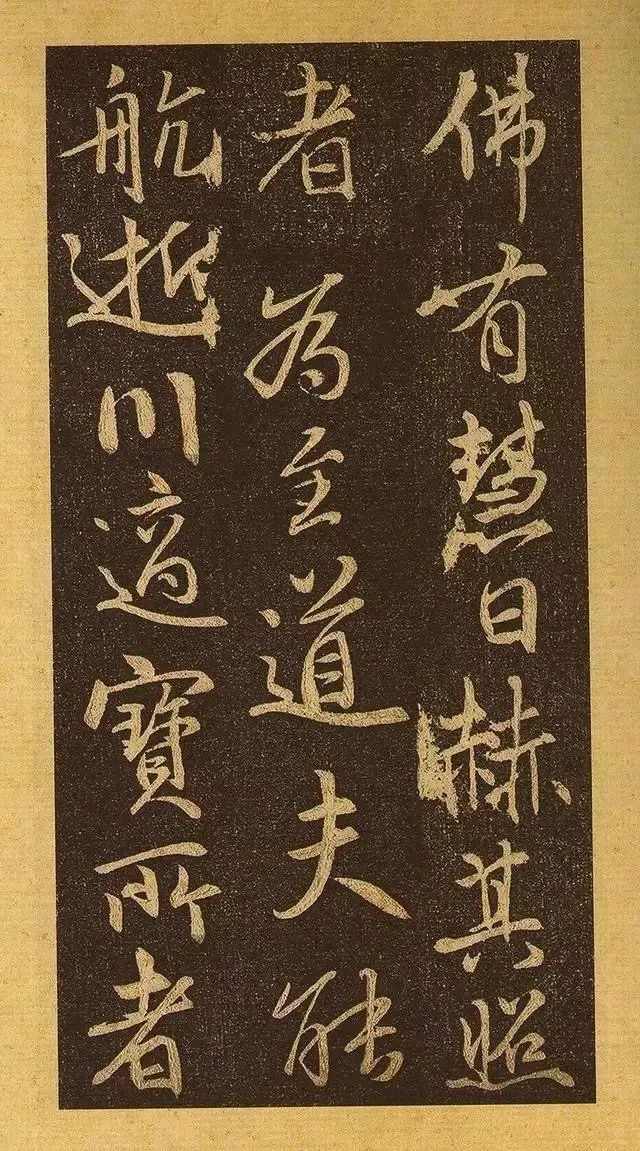 佛有慧日赫其照
者为主道夫能
航逝川適寶所者